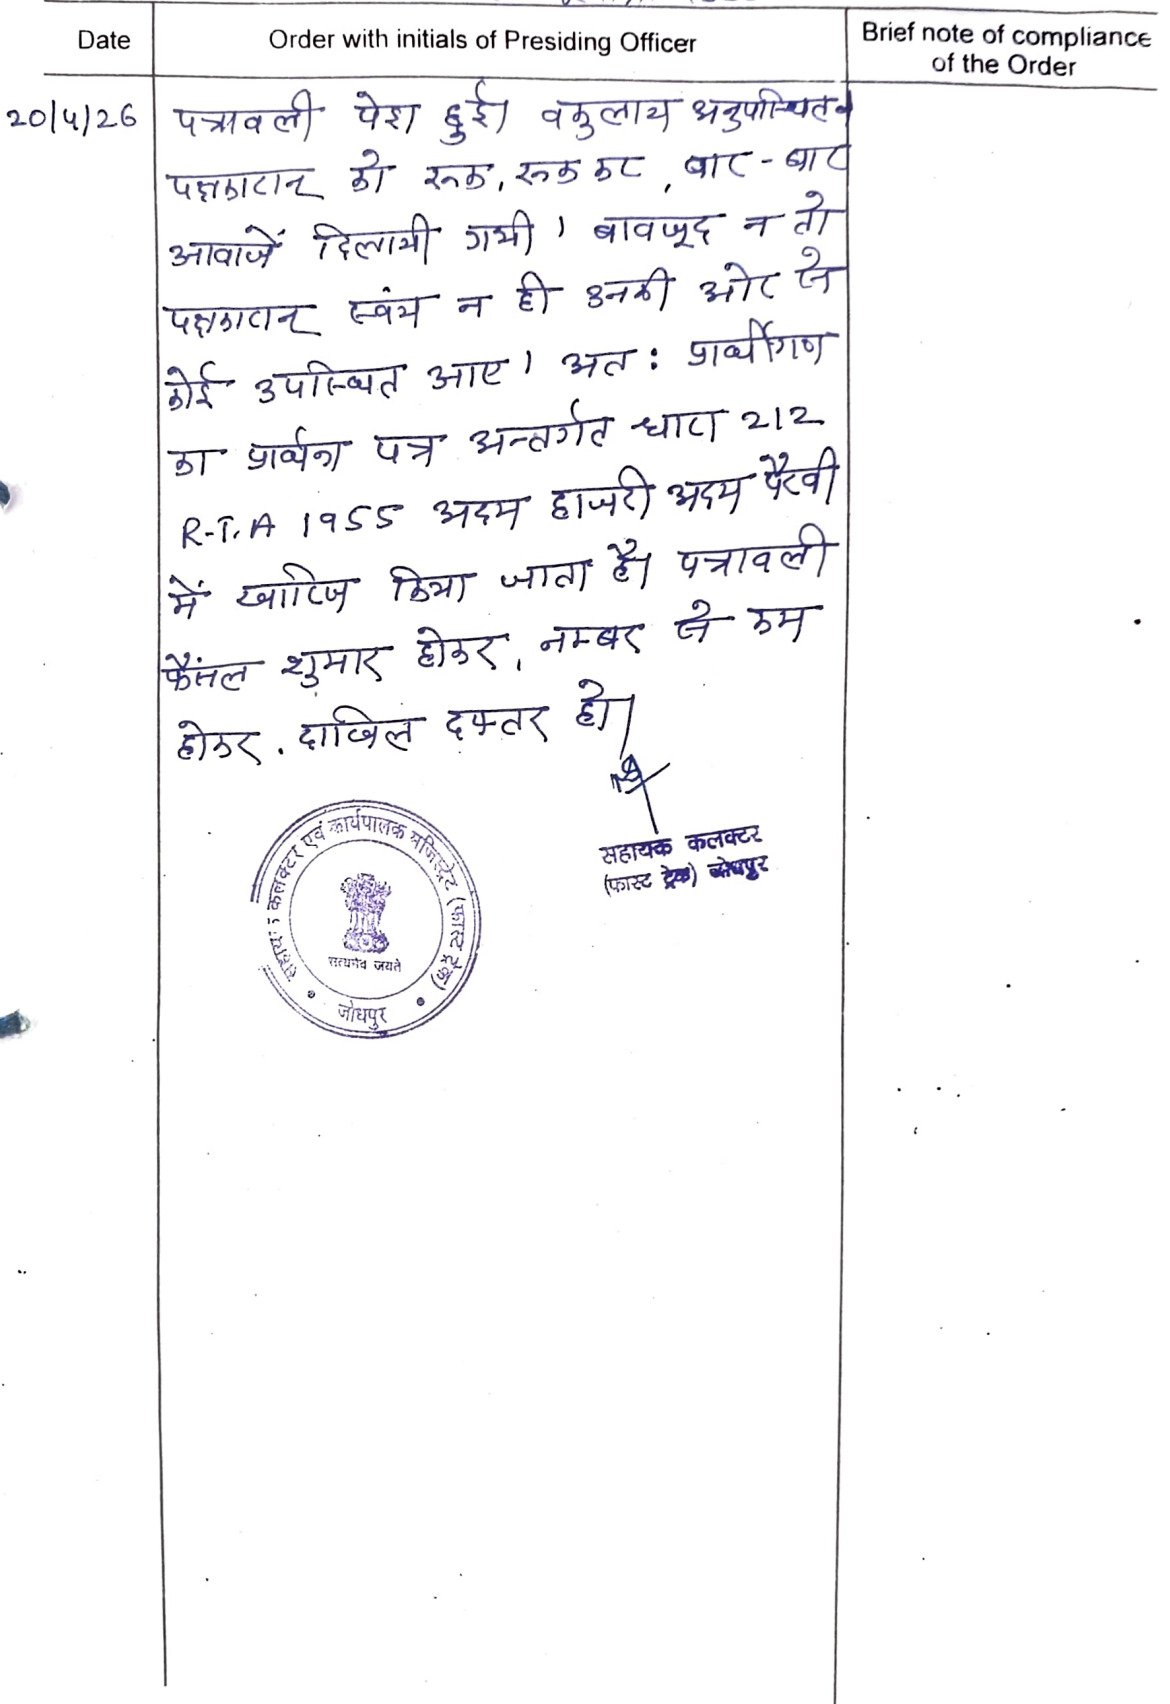 Date
Order with initials of Presiding Officer
Brief note of compliance
of the Order
20/4/26
पत्रावली पेश हुई। वकुलाय अनुपस्थित।
पक्षकारान् को रूक, रूक कर, बार-बार
आवाजें दिलायी गयी। बावजूद न तो
पक्षकारान् स्वंय न ही उनकी ओर से
कोई उपस्थित आए। अत: प्रार्थीगण
का प्रार्थना पत्र अन्तर्गत धारा 212
R.T.A 1955 अदम हाजरी अदम पैरवी
में खारिज किया जाता है। पत्रावली
फैंसल शुमार होकर, नम्बर से कम
होकर. दाखिल दफ्तर हो।
सहायक कलक्टर
(फास्ट ट्रेक) जोधपुर
सहायक कलक्टर एवं कार्यपालक मजिस्ट्रेट (फास्ट ट्रेक)
सत्यमेव जयते
जोधपुर